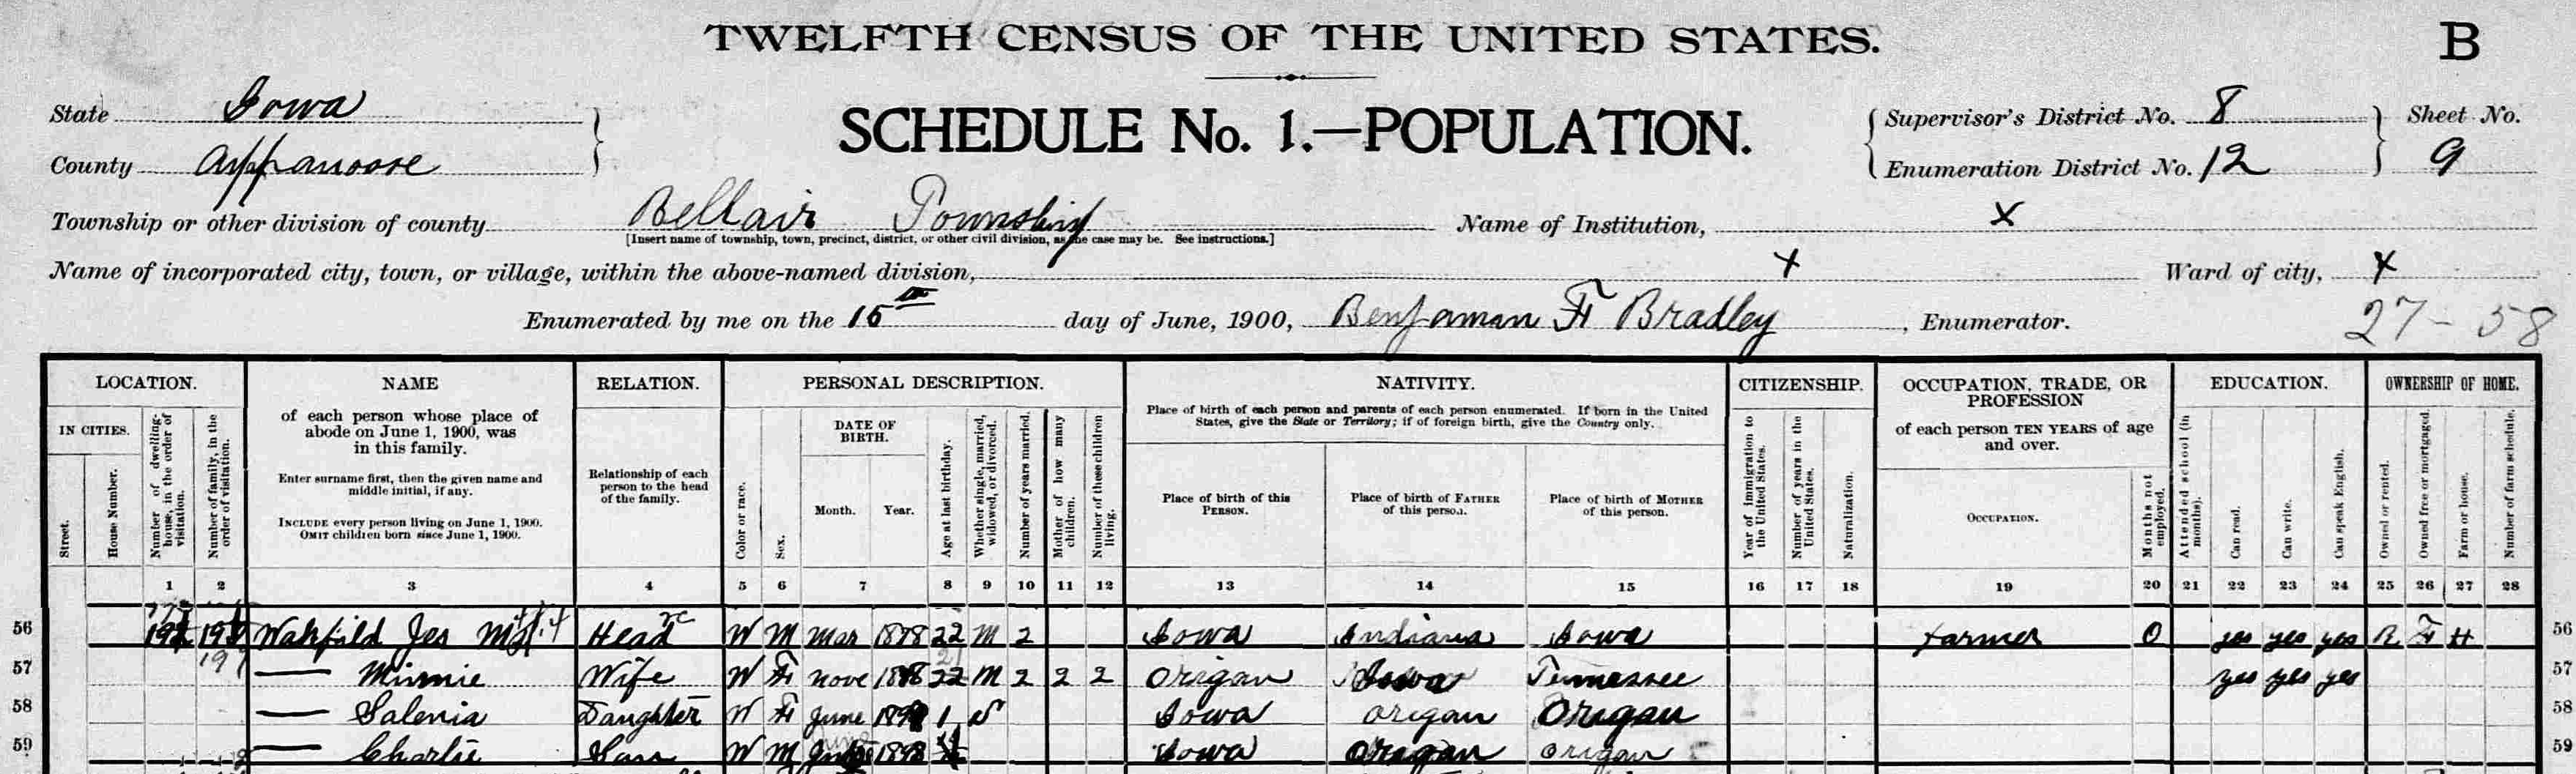 TWELFTH CENSUS OF THE UNITED STATES.
B
State Iowa
County Appanoose
SCHEDULE No. 1.—POPULATION.
Supervisor's District No. 8
Enumeration District No. 12
Sheet No.
9
Township or other division of county Bellair Township
[Insert name of township, town, precinct, district, or other civil division, as the case may be. See instructions.]
Name of Institution, X
Name of incorporated city, town, or village, within the above-named division, X
Ward of city, X
Enumerated by me on the 15th day of June, 1900, Benjaman F Bradley, Enumerator.
27-58
LOCATION.
IN CITIES.
Street.
House Number.
Number of dwelling-house, in the order of visitation.
Number of family, in the order of visitation.
NAME
of each person whose place of
abode on June 1, 1900, was
in this family.
Enter surname first, then the given name and
middle initial, if any.
INCLUDE every person living on June 1, 1900.
OMIT children born since June 1, 1900.
RELATION.
Relationship of each
person to the head
of the family.
PERSONAL DESCRIPTION.
Color or race.
Sex.
DATE OF
BIRTH.
Month.
Year.
Age at last birthday.
Whether single, married, widowed, or divorced.
Number of years married.
Mother of how many children.
Number of these children living.
NATIVITY.
Place of birth of each person and parents of each person enumerated. If born in the United
States, give the State or Territory; if of foreign birth, give the Country only.
Place of birth of this
PERSON.
Place of birth of FATHER
of this person.
Place of birth of MOTHER
of this person.
CITIZENSHIP.
Year of immigration to the United States.
Number of years in the United States.
Naturalization.
OCCUPATION, TRADE, OR
PROFESSION
of each person TEN YEARS of age
and over.
OCCUPATION.
Months not employed.
EDUCATION.
Attended school (in months).
Can read.
Can write.
Can speak English.
OWNERSHIP OF HOME.
Owned or rented.
Owned free or mortgaged.
Farm or house.
Number of farm schedule.
1 2 3 4 5 6 7 8 9 10 11 12 13 14 15 16 17 18 19 20 21 22 23 24 25 26 27 28
56 Wakfild Jes Head W M Mar 1878 22 M 2 Iowa Indiana Iowa Farmer 0 yes yes yes R F H 56
57 — Minnie Wife W F Nove 22 M 2 2 2 Origan Iowa Tennessee yes yes yes 57
58 — Salenia Daughter W F June 1 S Iowa Origan Origan 58
59 — Charlie W M 1898 Iowa Origan Origan 59